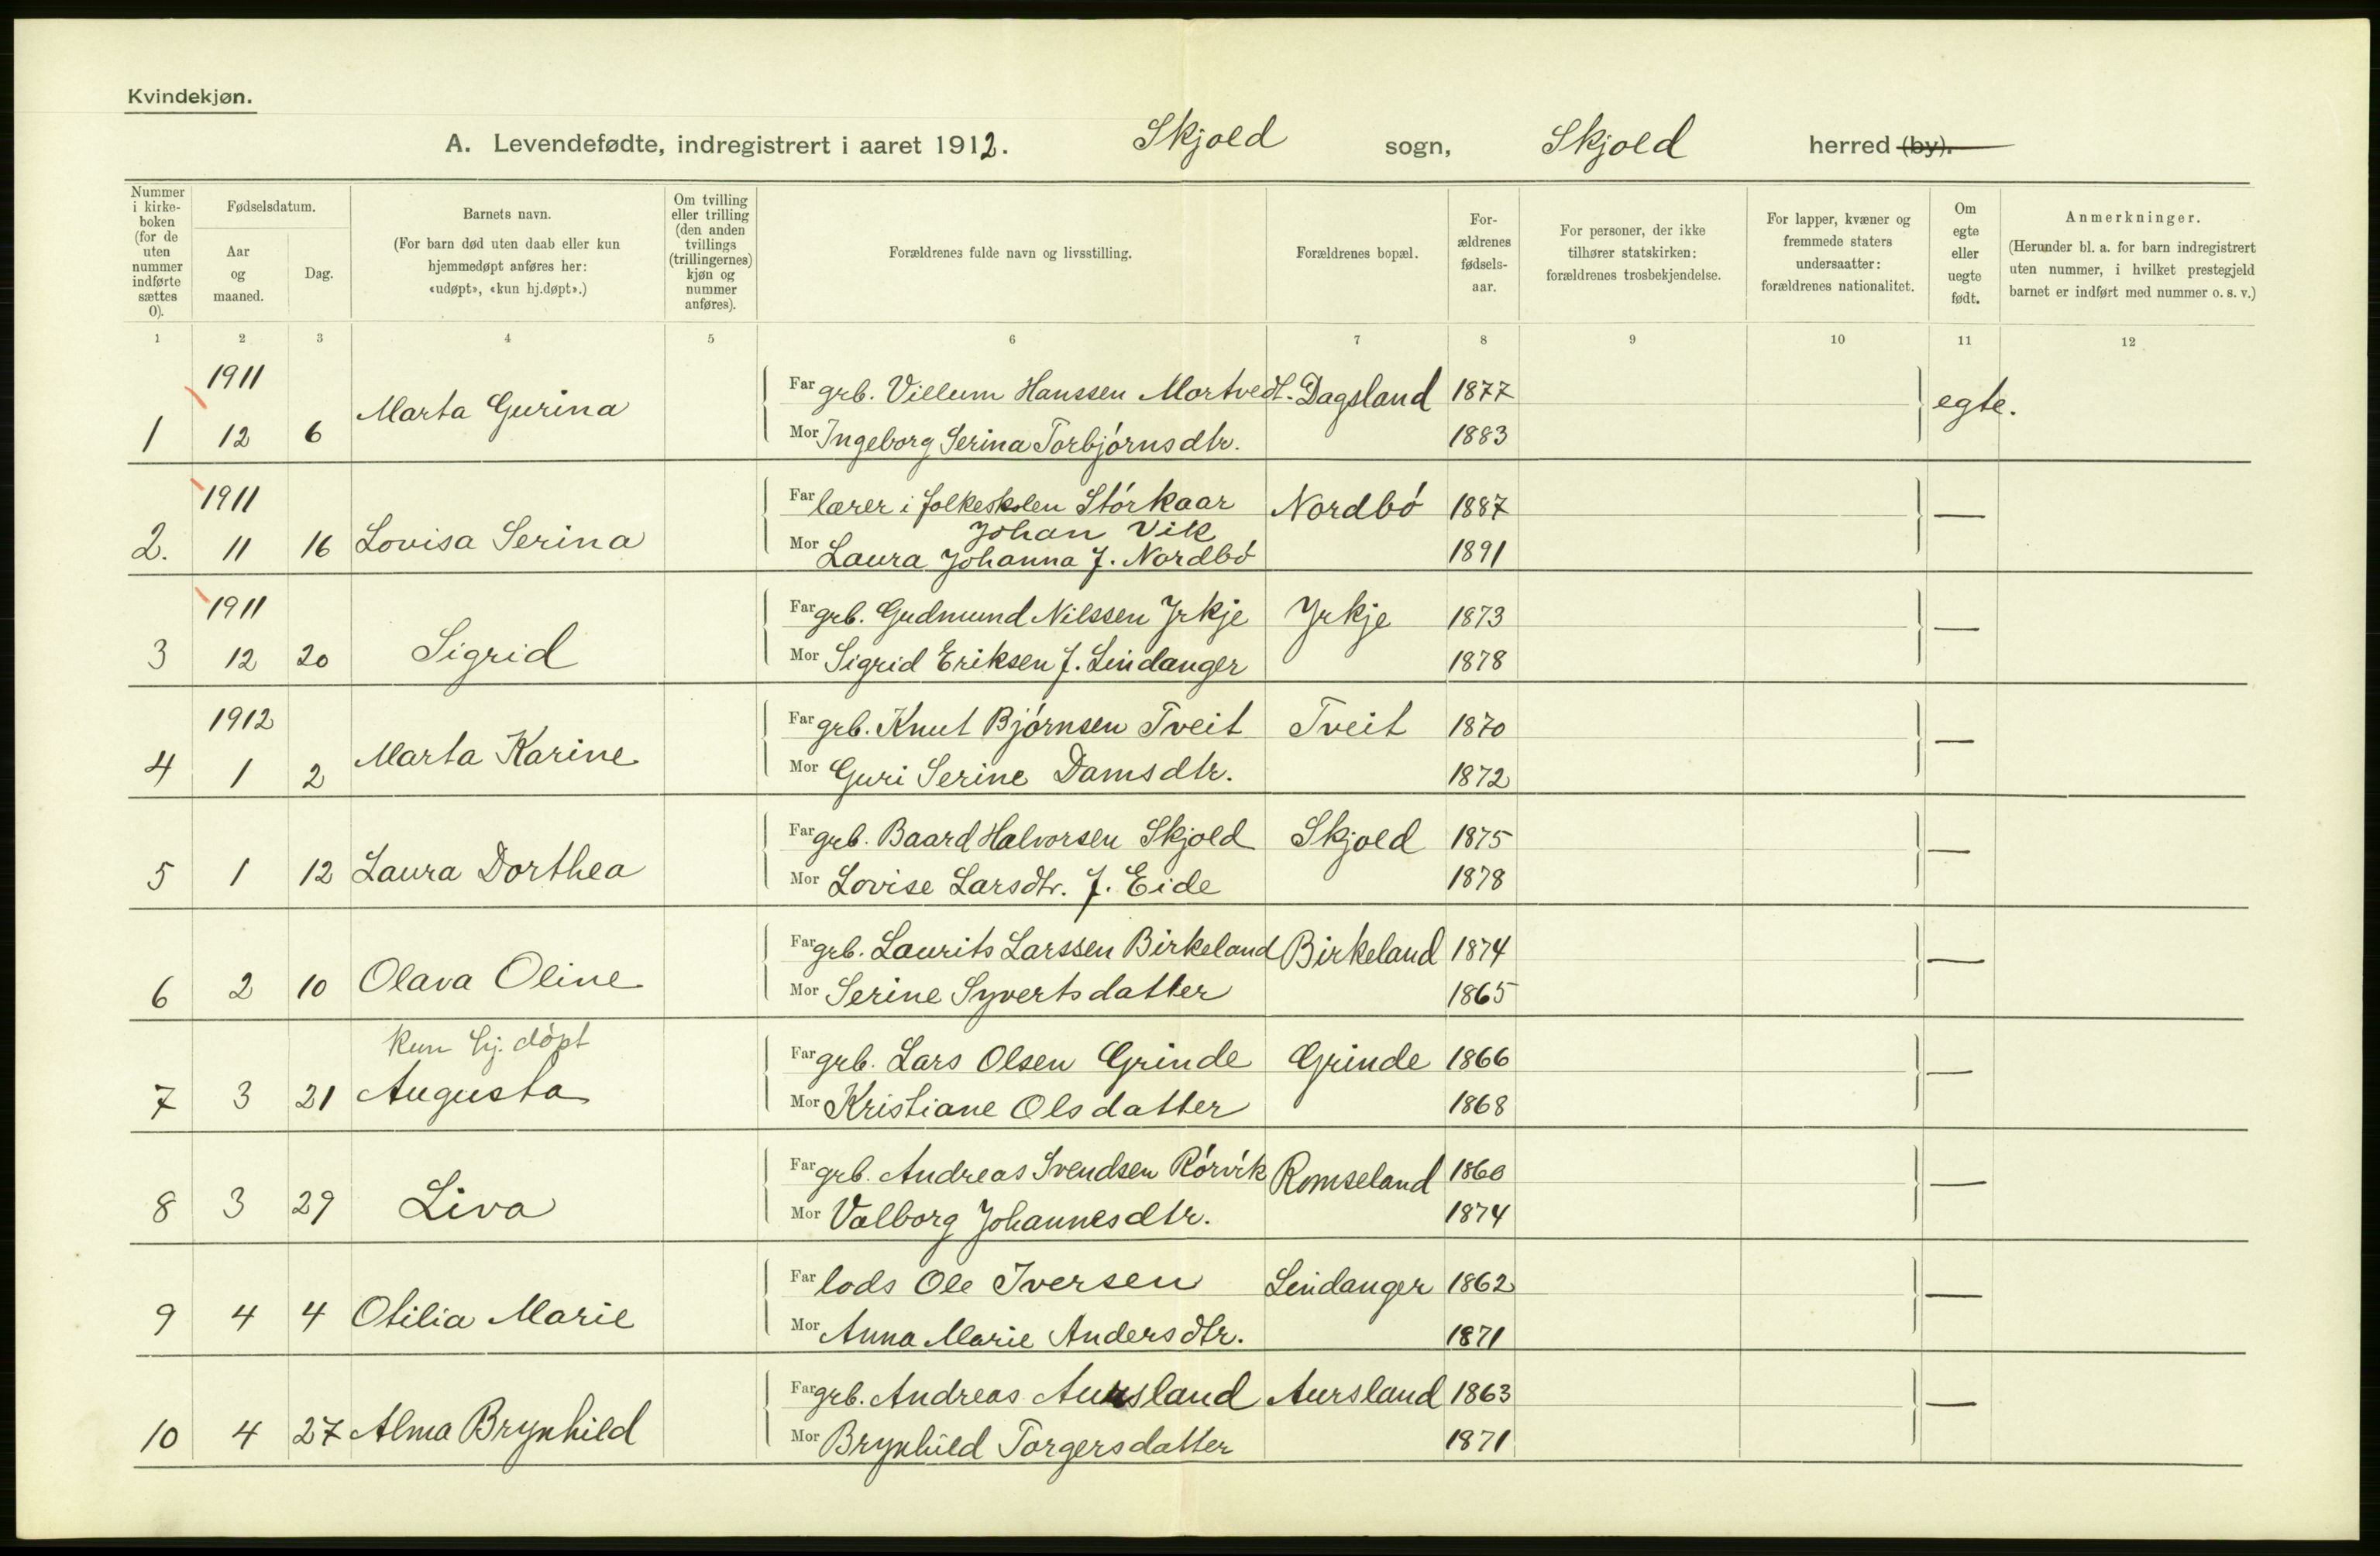 Kvindekjøn.
A. Levendefødte, indregistrert i aaret 1912. Skjold sogn, Skjold herred (by).
Nummer i kirke-boken (for de uten nummer indførte sættes 0).
Fødselsdatum.
Aar og maaned.
Dag.
Barnets navn.
(For barn død uten daab eller kun hjemmedøpt anføres her: «udøpt», «kun hj.døpt».)
Om tvilling eller trilling (den anden tvillings (trillingernes) kjøn og nummer anføres).
Forældrenes fulde navn og livsstilling.
Forældrenes bopæl.
For-ældrenes fødsels-aar.
For personer, der ikke tilhører statskirken: forældrenes trosbekjendelse.
For lapper, kvæner og fremmede staters undersaatter: forældrenes nationalitet.
Om egte eller uegte født.
Anmerkninger.
(Herunder bl. a. for barn indregistrert uten nummer, i hvilket prestegjeld barnet er indført med nummer o. s. v.)
1 2 3 4 5 6 7 8 9 10 11 12
1911
Far grb. Villum Hanssen Mortvedt. Dagsland 1877
1 12 6 Marta Gurina egte.
Mor Ingeborg Serina Torbjórnsdtr. 1883
1911
Far lærer i folkeskolen Stórkaar Nordbó 1887
Johan Vik
2. 11 16 Lovisa Serina —
Mor Laura Johanna f. Nordbó 1891
1911
Far grb. Gudmund Nilssen Yrkje Yrkje 1873
3 12 20 Sigrid —
Mor Sigrid Eriksen f. Lindanger 1878
1912
Far grb. Knut Bjórnsen Tveit Tveit 1870
4 1 2 Marta Karine —
Mor Guri Serine Damsdtr. 1872
Far grb. Baard Halvorsen Skjold Skjold 1875
5 1 12 Laura Dorthea —
Mor Lovise Larsdtr. f. Eide 1878
Far grb. Laurits Larssen Birkeland Birkeland 1874
6 2 10 Olava Oline —
Mor Serine Syvertsdatter 1865
kun hj. dópt
Far grb. Lars Olsen Grinde Grinde 1866
7 3 21 Augusta —
Mor Kristiane Olsdatter 1868
Far grb. Andreas Svendsen Rórvik Romseland 1860
8 3 29 Liva —
Mor Valborg Johannesdtr. 1874
Far lods Ole Iversen Lindanger 1862
9 4 4 Otilia Marie —
Mor Anna Marie Andersdtr. 1871
Far grb. Andreas Aursland Aursland 1863
10 4 27 Alma Brynhild —
Mor Brynhild Torgersdatter 1871